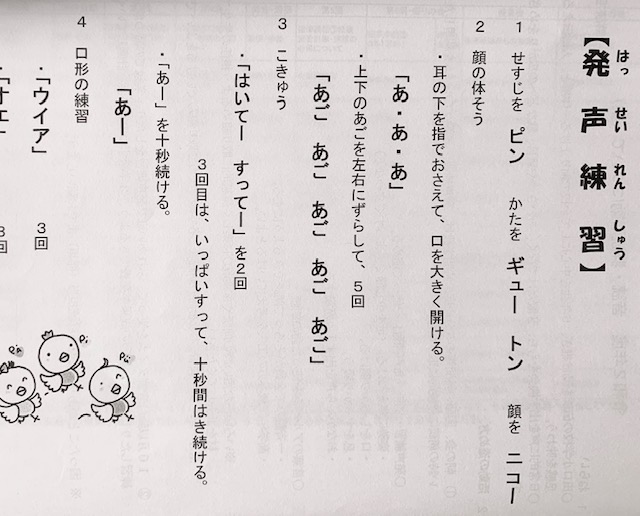 【発声練習】
はっ せい れん しゅう
1 せすじを ピン かたを ギュー トン 顔を ニコー
2 顔の体そう
・耳の下を指でおさえて、口を大きく開ける。
「あ・あ・あ」
・上下のあごを左右にずらして、5回
「あご あご あご あご あご」
3 こきゅう
・「はいてー すってー」を2回
3回目は、いっぱいすって、十秒間はき続ける。
・「あー」を十秒続ける。
「あー」
4 口形の練習
・「ウイア」 3回
・「オエ」 3回
Pi
Pi
Pi